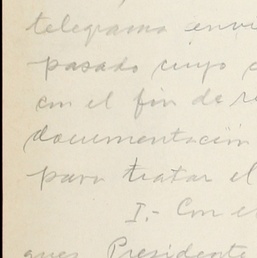 telegrama envi
pasado cuyo c
con el fin de re
documentación
para tratar el
I.- Con el
ques Presidente